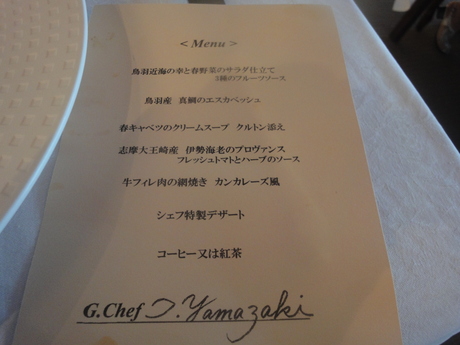 < Menu >
鳥羽近海の幸と春野菜のサラダ仕立て
3種のフルーツソース
鳥羽産 真鯛のエスカベッシュ
春キャベツのクリームスープ クルトン添え
志摩大王崎産 伊勢海老のプロヴァンス
フレッシュトマトとハーブのソース
牛フィレ肉の網焼き カンカレーズ風
シェフ特製デザート
コーヒー又は紅茶
G.Chef J. Yamazaki